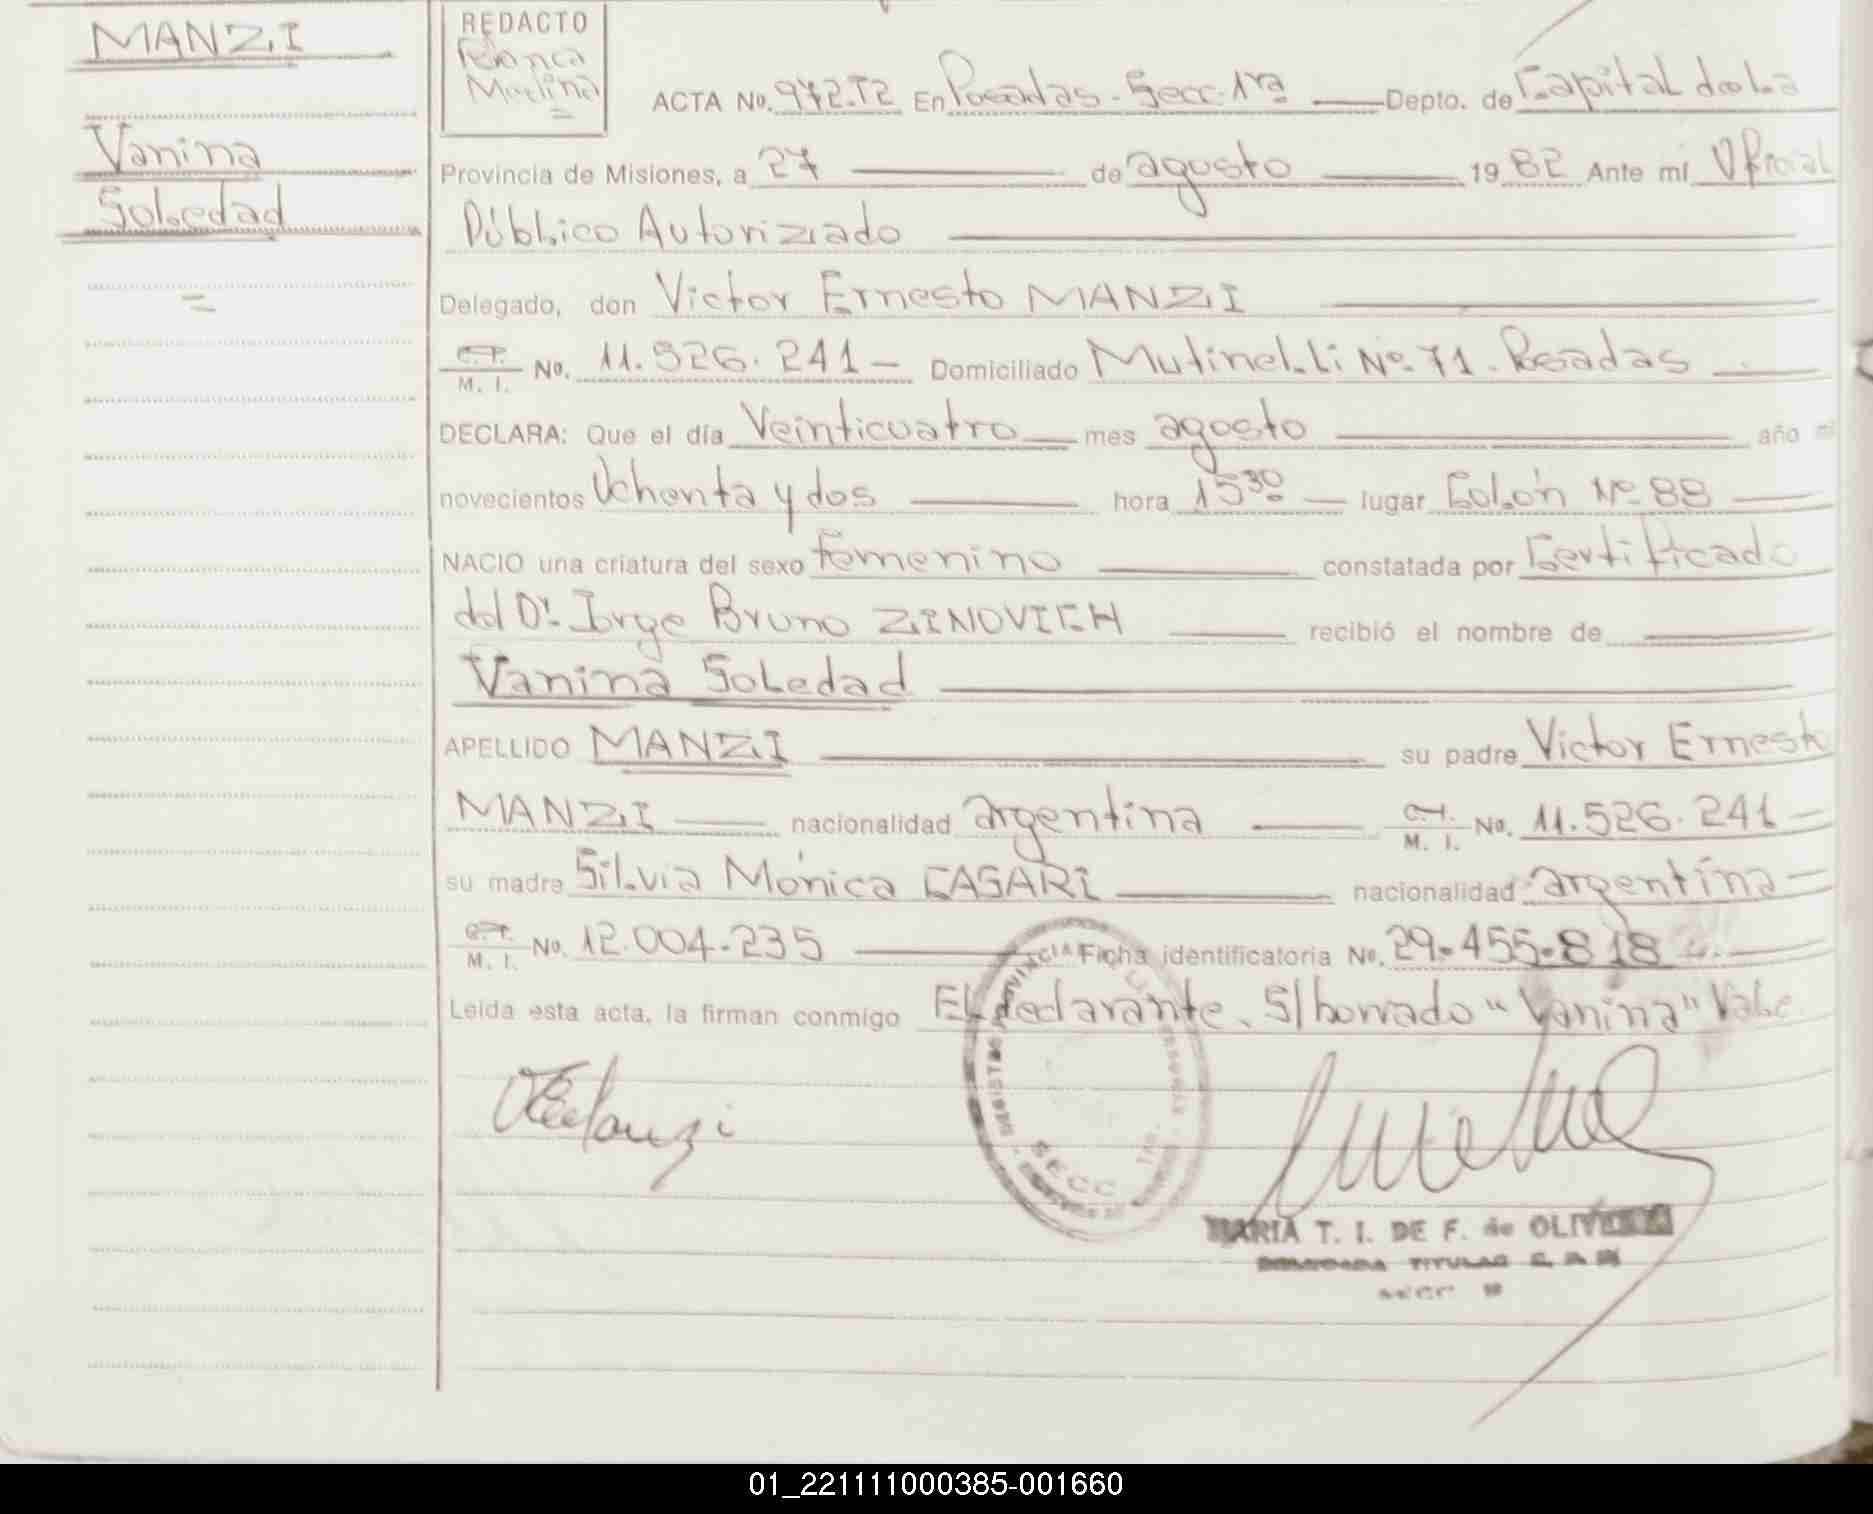 MANZI
Vanina
Soledad
=
REDACTO
Blanca
Molina
=
ACTA No. 972.T2 En Posadas-Secc. 1ra Depto. de Capital de la
Provincia de Misiones, a 27 de agosto 1982 Ante mí Oficial
Público Autorizado
Delegado, don Victor Ernesto MANZI
M. I. No. 11.526.241- Domiciliado Mutinelli Nº 71. Posadas
DECLARA: Que el día Veinticuatro mes agosto año mi
novecientos Ochenta y dos hora 15 30 lugar Colón Nº 88
NACIO una criatura del sexo femenino constatada por Certificado
del Dr. Jorge Bruno ZINOVICH recibió el nombre de
Vanina Soledad
APELLIDO MANZI su padre Victor Ernesto
MANZI nacionalidad argentina M. I. No. 11.526.241-
su madre Silvia Mónica CASARI nacionalidad argentina-
M. I. No. 12.004.235 Ficha identificatoria No. 29.455.818
Leida esta acta, la firman conmigo El declarante. S/borrado "Vanina" Vale
SECC
MARIA T. I. DE F. de OLIVEIRA
DELEGADA TITULAR
SECC
01_221111000385-001660